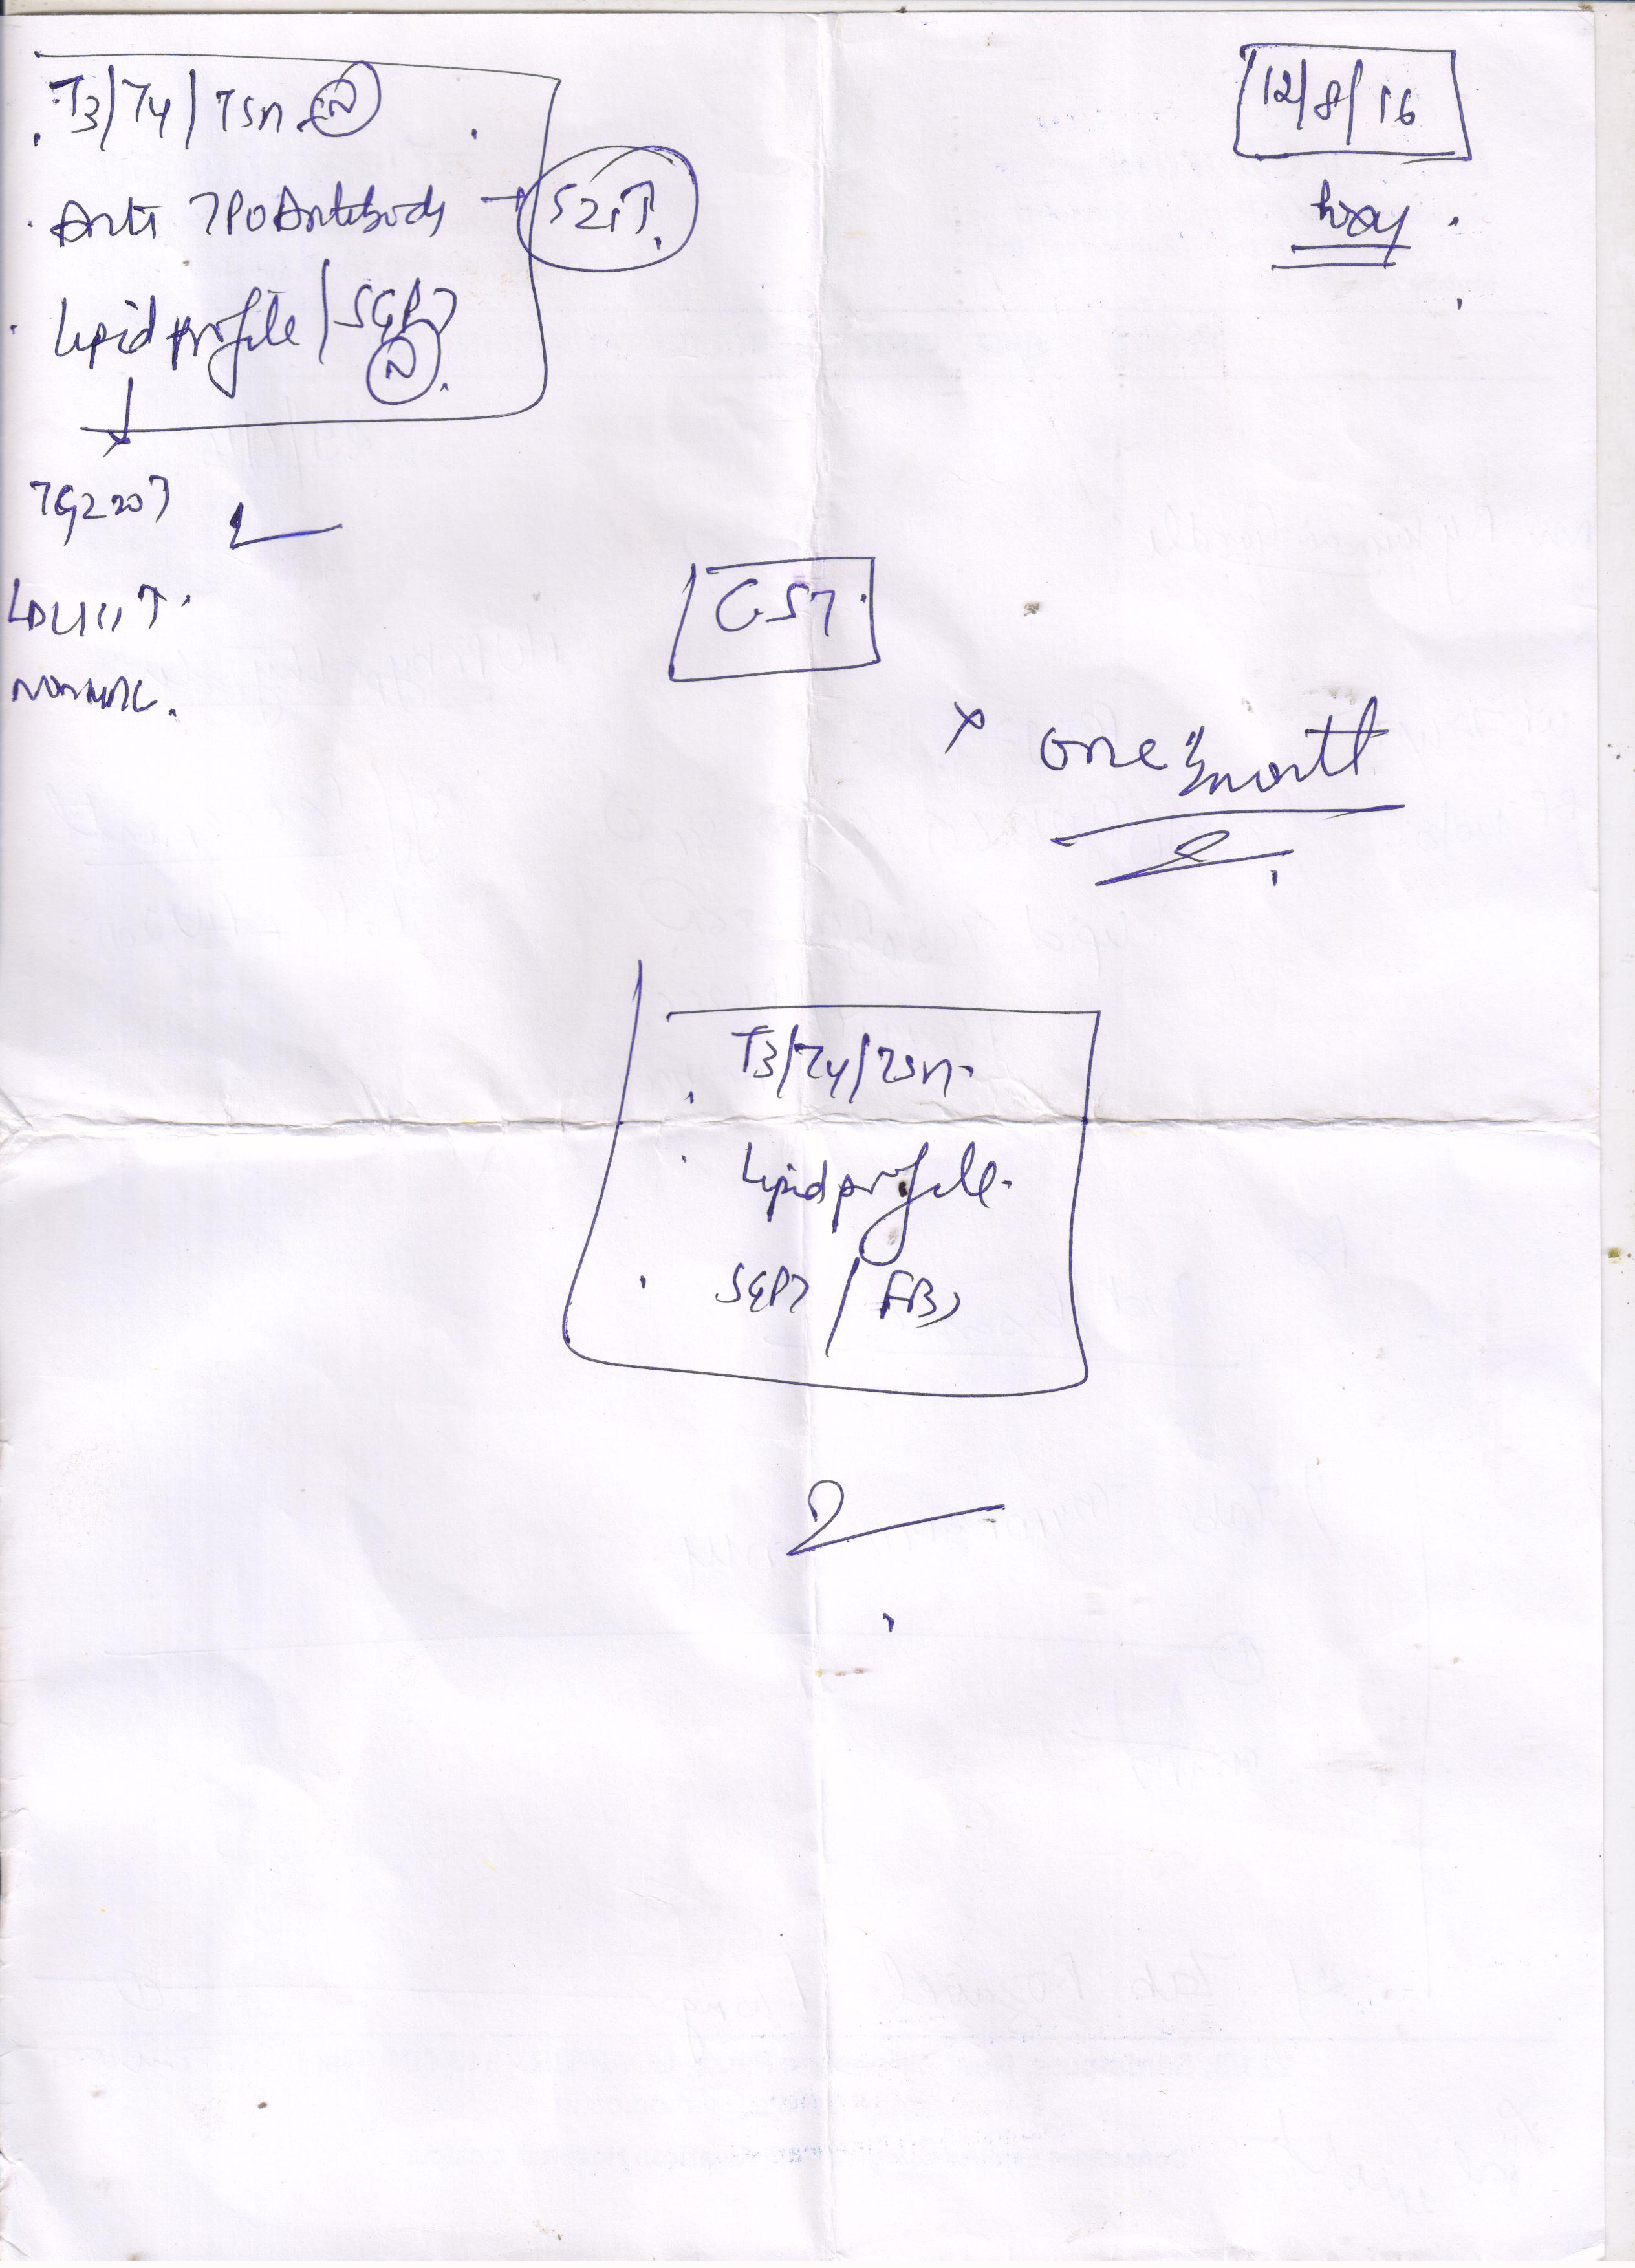 T3/T4/TSH (N)
12/8/16
Anti TPO Antibody → 521↑
Lipid profile / SGPT
(N)
TG 220↑
LDL 111↑
NORMAL.
CST
x one month
T3/T4/TSH
Lipid profile
SGPT / FBS